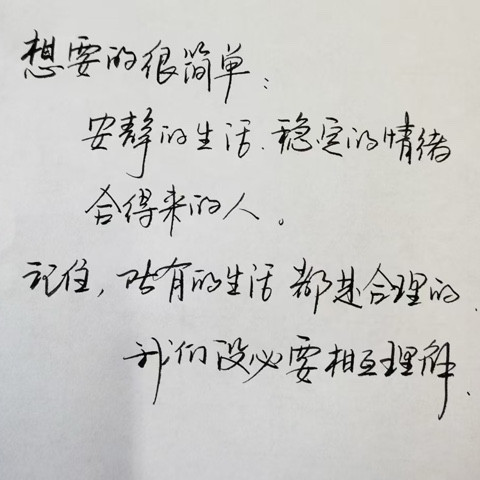 想要的很简单：
安静的生活、稳定的情绪
合得来的人。
记住，所有的生活都是合理的.
我们没必要相互理解.